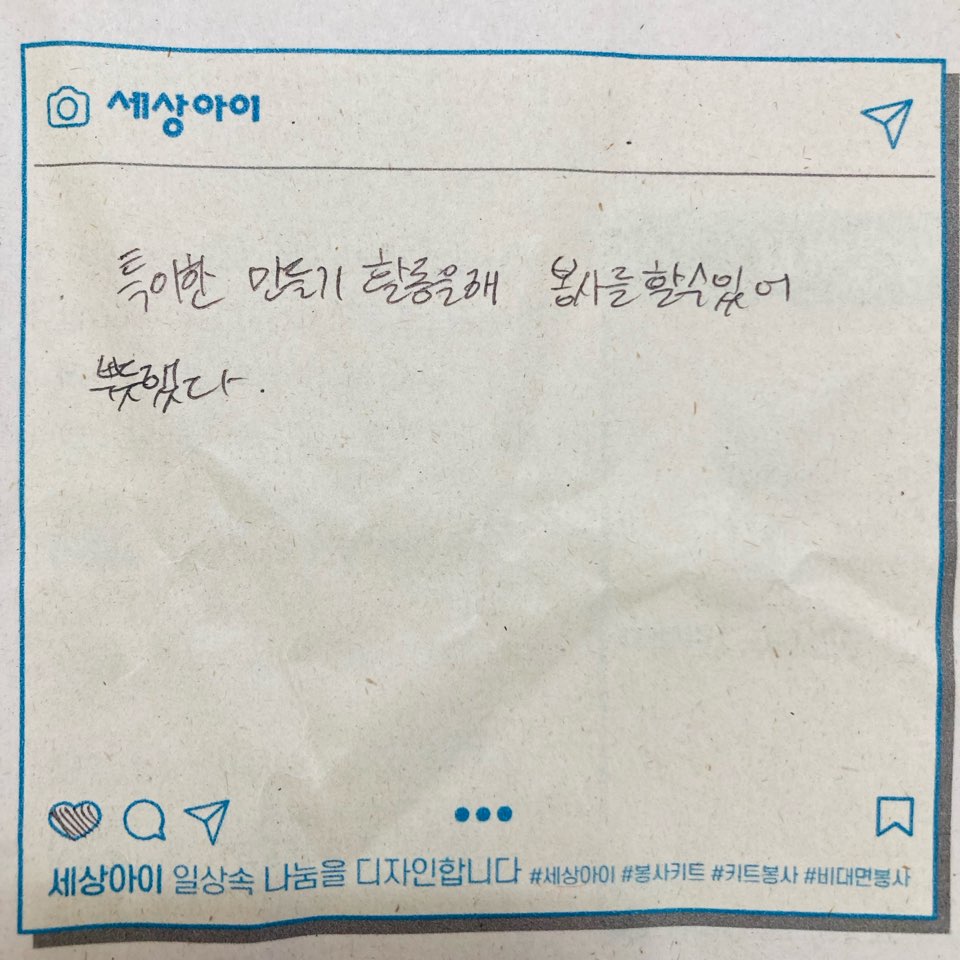 세상아이
특이한 만들기 활동을해 봉사를 할수있어
뿌듯했다.
세상아이 일상속 나눔을 디자인합니다 #세상아이 #봉사키트 #키트봉사 #비대면봉사